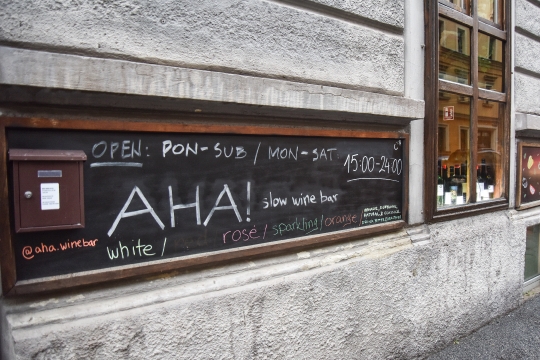 OPEN: PON-SUB / MON-SAT
15:00-24:00
AHA! slow wine bar
@aha.winebar
white / rosé / sparkling / orange /